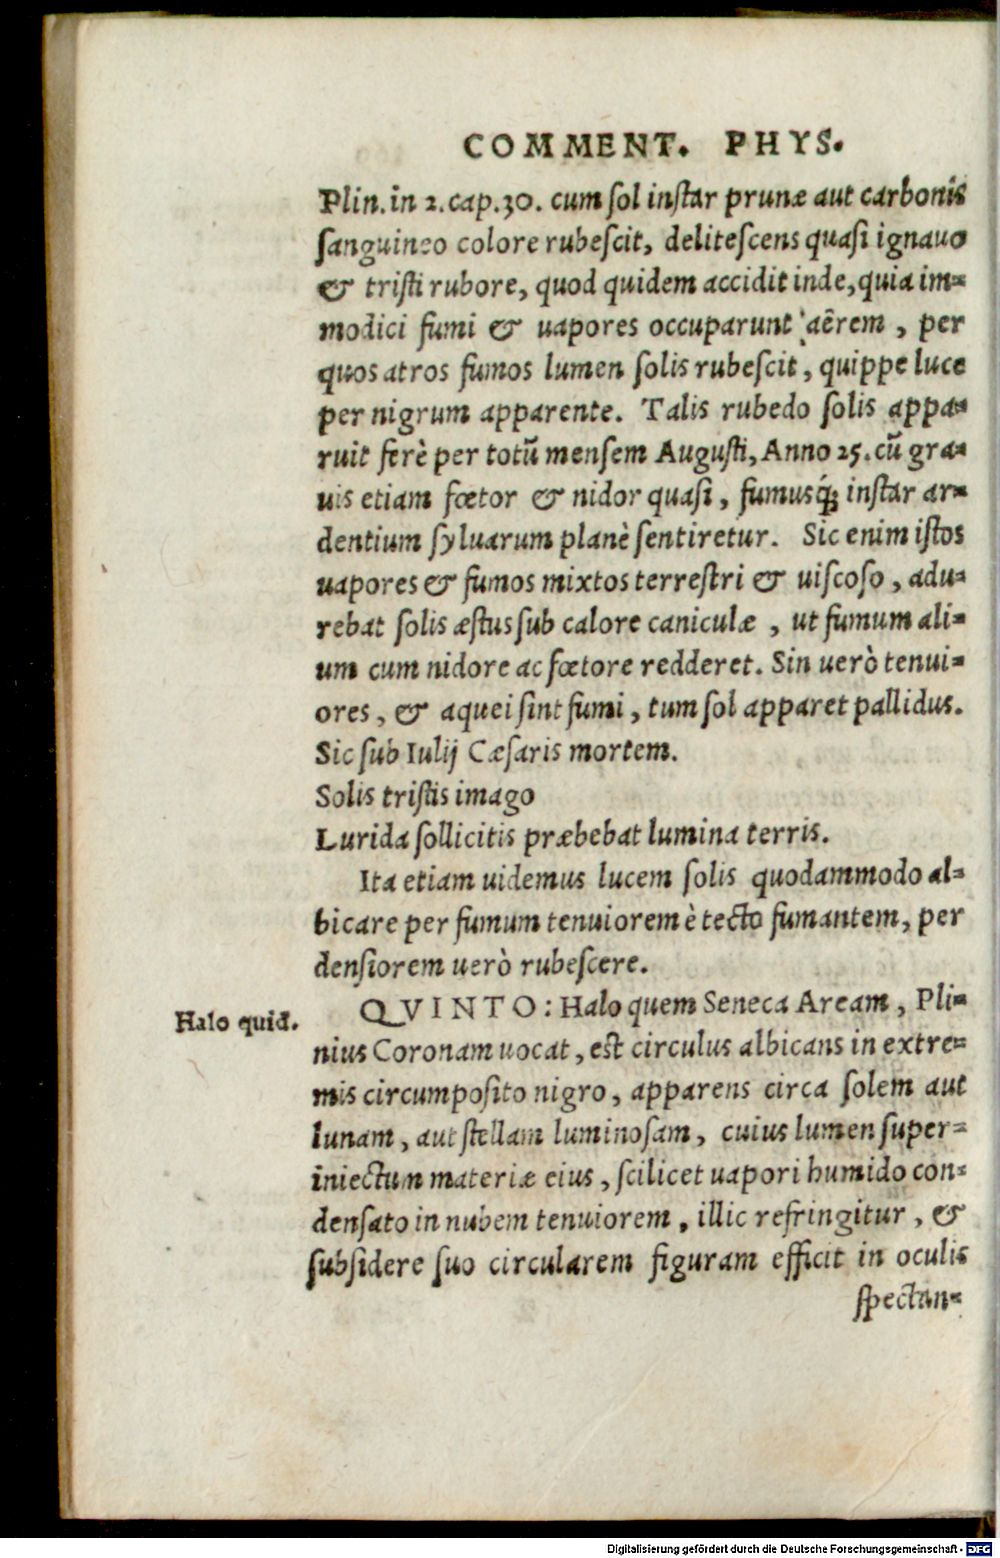 COMMENT. PHYS.
Plin. in 2. cap. 30. cum ſol inſtar prunæ aut carbonis
ſanguineo colore rubeſcit, deliteſcens quaſi ignauo
& triſti rubore, quod quidem accidit inde, quia im=
modici fumi & uapores occuparunt aërem, per
quos atros fumos lumen ſolis rubeſcit, quippe luce
per nigrum apparente. Talis rubedo ſolis appa=
ruit ferè per totū menſem Auguſti, Anno 25. cū gra=
uis etiam fœtor & nidor quaſi, fumusq́ꝫ inſtar ar=
dentium ſyluarum planè ſentiretur. Sic enim iſtos
uapores & fumos mixtos terreſtri & uiſcoſo, adu=
rebat ſolis æſtus ſub calore caniculæ, ut fumum ali=
um cum nidore ac fœtore redderet. Sin uerò tenui=
ores, & aquei ſint fumi, tum ſol apparet pallidus.
Sic ſub Iulij Cæſaris mortem.
Solis triſtis imago
Lurida ſollicitis præbebat lumina terris.
Ita etiam uidemus lucem ſolis quodammodo al=
bicare per fumum tenuiorem è tecto fumantem, per
denſiorem uerò rubeſcere.
Halo quid.
QVINTO: Halo quem Seneca Aream, Pli=
nius Coronam uocat, eſt circulus albicans in extre=
mis circumpoſito nigro, apparens circa ſolem aut
lunam, aut ſtellam luminoſam, cuius lumen ſuper=
iniectum materiæ eius, ſcilicet uapori humido con=
denſato in nubem tenuiorem, illic refringitur, &
ſubſidere ſuo circularem figuram efficit in oculis
ſpectan=
Digitalisierung gefördert durch die Deutsche Forschungsgemeinschaft - DFG